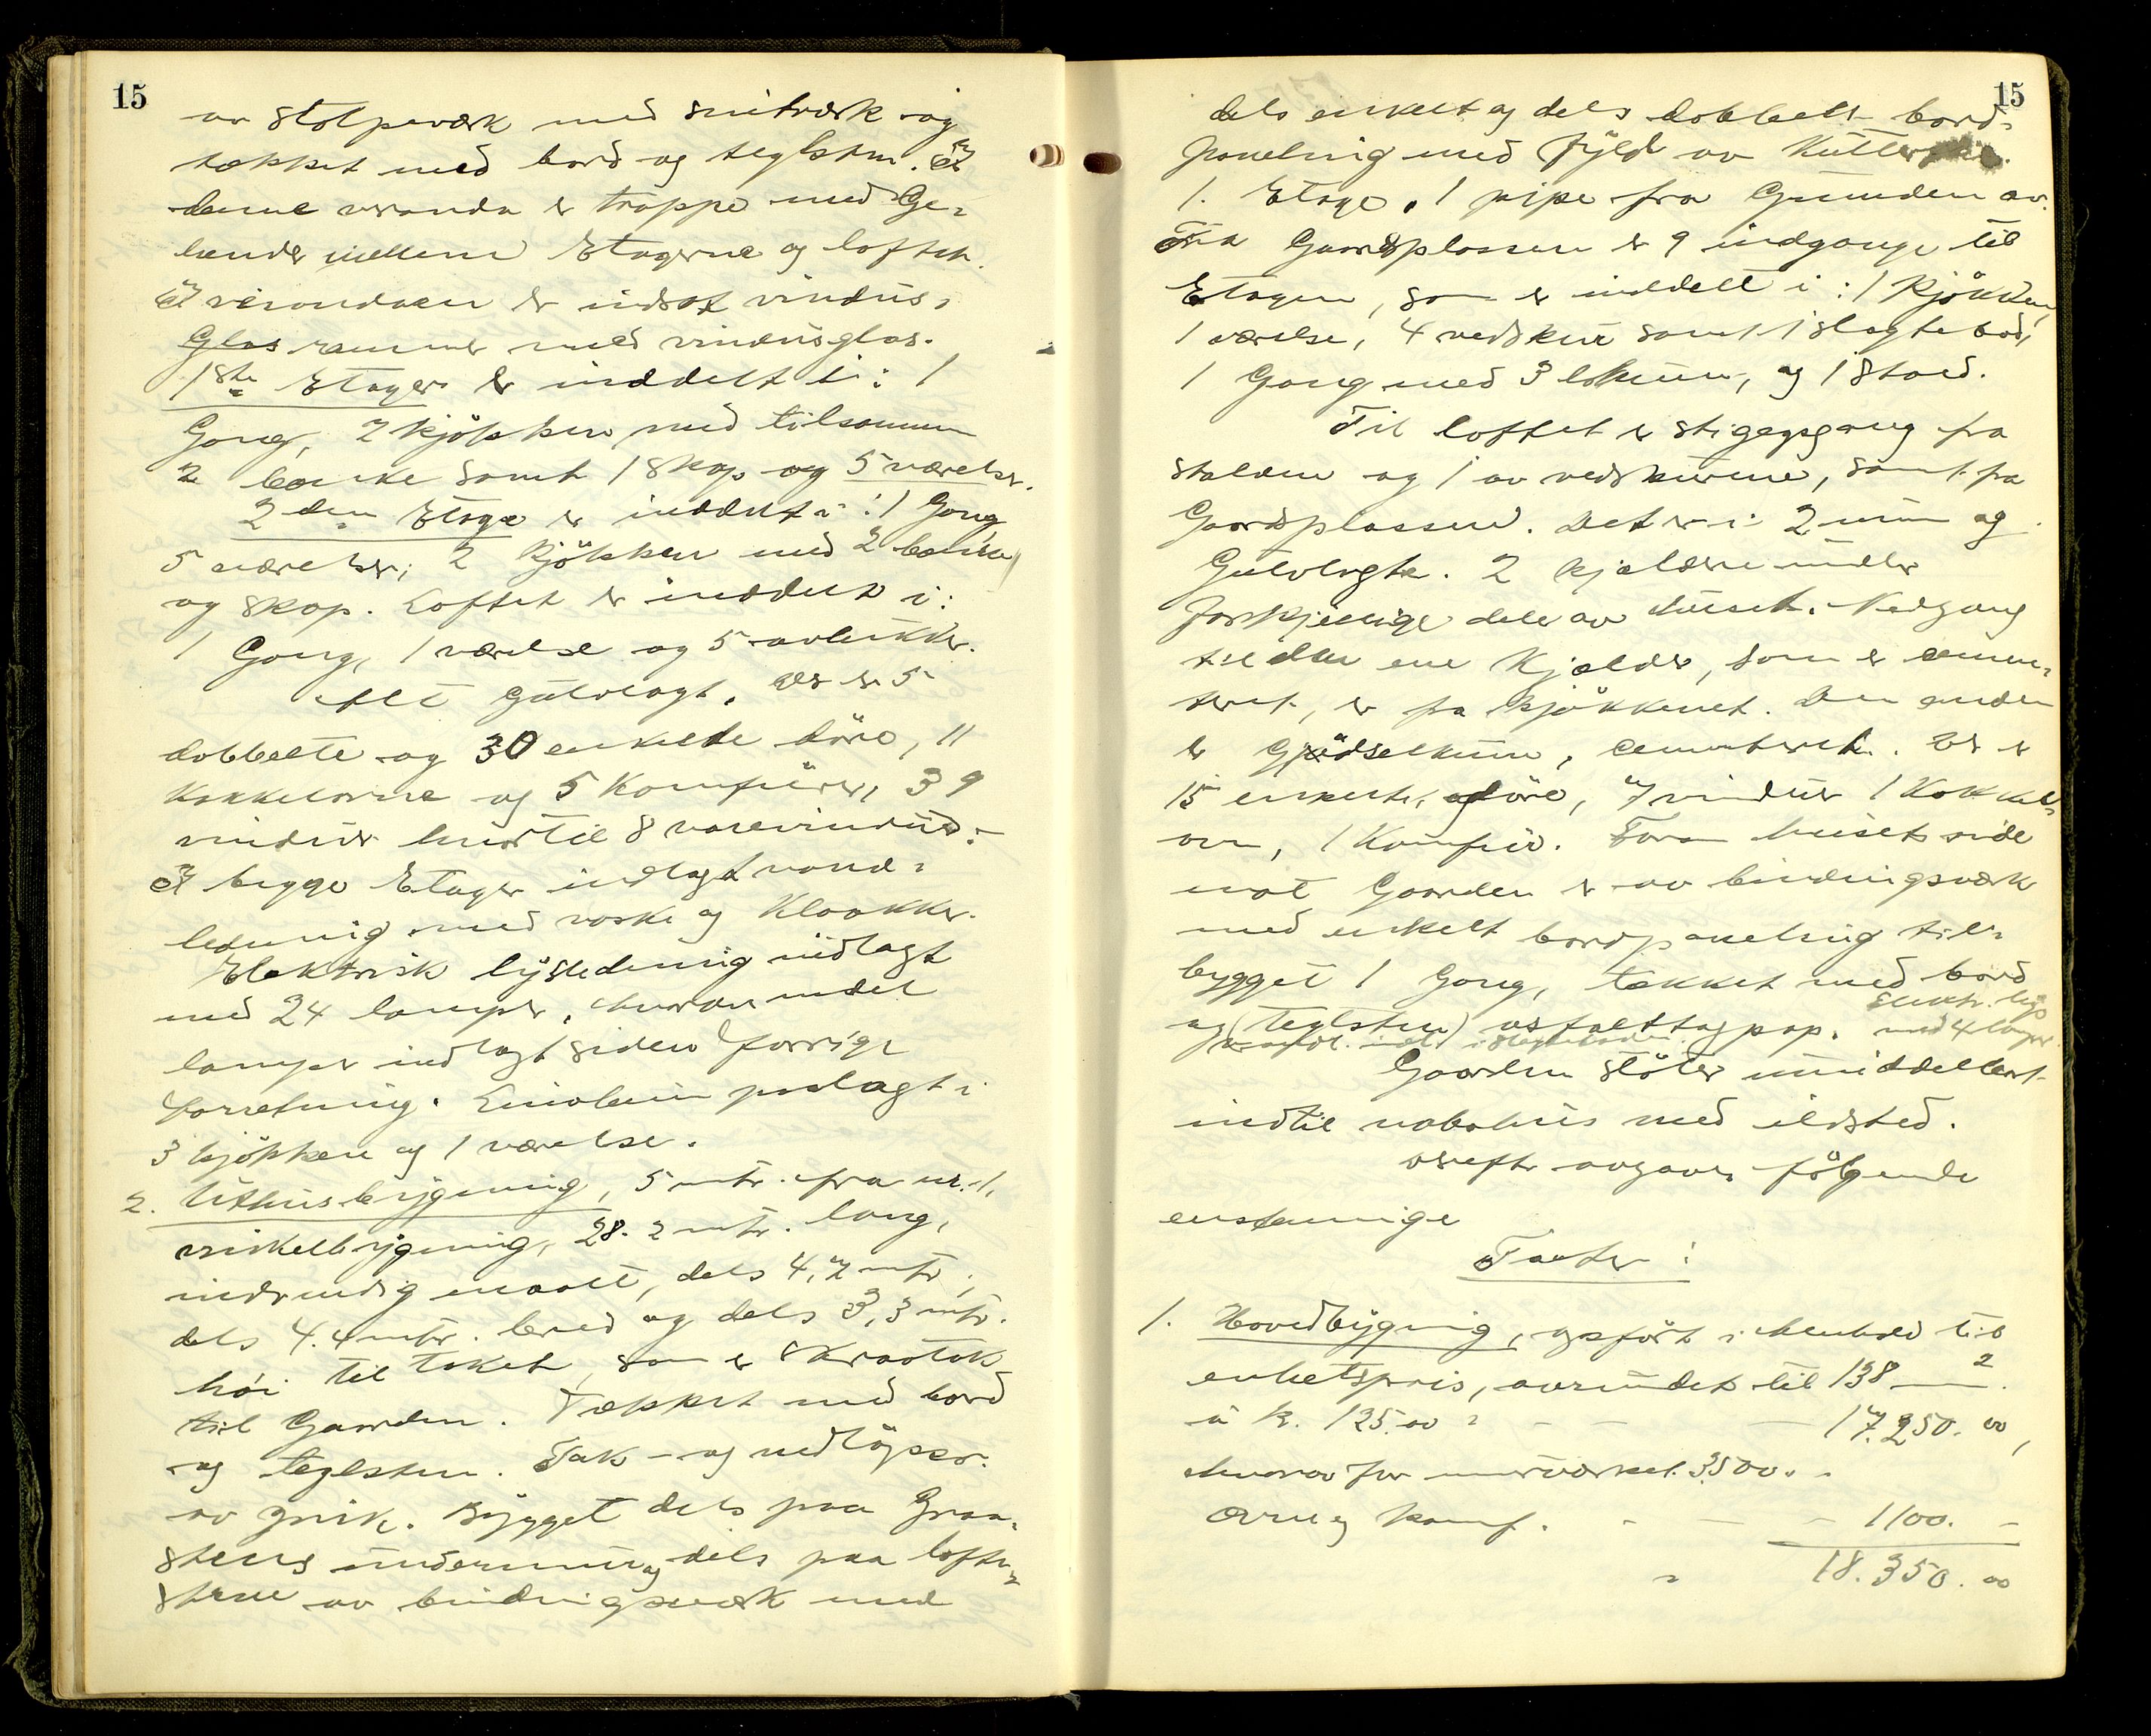 15
av stolpeværk med snitværk og
tækket med bord og teglsten. I
denne veranda er trappe med Ge-
lender mellem Etagerne og loftet.
I verandaen er indsat vindus-
Glas rammer med vindusglas.
1ste Etage er inddelt i: 1
Gang, 2 kjøkken med tilsammen
2 bænke samt 1 skap og 5 værelser.
2den Etage er inddelt i: 1 Gang
5 værelser, 2 Kjøkken med 2 bænke
og skap. Loftet er inddelt i:
1 Gang, 1 værelse og 5 avlukker.
Alt gulvlagt. Der er 5
dobbelte og 30 enkelte døre, 11
Kakkelovne og 5 Komfurer, 39
vinduer hvortil 8 varevinduer.
I begge Etager indlagt vand-
ledning med vaske og Kloakker.
Elektrisk lysledning indlagt
med 24 lamper, hvorav endel
lamper indlagt siden forrige
forretning. Linoleum paalagt i
3 kjøkken og 1 værelse.
2. Uthusbygning, 5 mtr. fra nr. 1,
vinkelbygning, 28.2 mtr. lang,
indvendig maalt, dels 4,7 mtr,
dels 4.4 mtr. bred og dels 3,3 mtr.
høi til taket, som er skraatak
til Gaarden. Tækket med bord
og teglsten. Tak- og nedløpsr.
av zink. Bygget dels paa Graa-
stens undermur og dels paa loftr-
stene av bindingsværk med
15
dels enkelt og dels dobbelt bord-
paneling med fyld av Kutter
1. Etage. 1 pipe fra Grunden av.
Fra Gaardsplassen er 9 indgange til
Etagen, som er inddelt i: 1 Kjøkken,
1 værelse, 4 vedskur samt 1 slagtebod,
1 Gang med 3 lokum, og 1 stald.
Til loftet er stigegang fra
stalden og 1 av vedskurene, samt fra
Gaardsplassen. Det er i 2 rum og
Gulvlagte. 2 kjældere under
forskjellige dele av huset. Nedgang
til den ene Kjælder, som er cemen-
teret, er fra Kjøkkenet. Den anden
er Gjødselkum, cementeret. Der er
15 enkelte døre, 7 vinduer 1 Kakkel-
ovn, 1 Komfur. Foran husets side
mot Gaarden er av bindingsværk
med enkelt bordpaneling til-
bygget 1 Gang, tækket med bord
Elektr. lys
og (teglsten) asfalttagpap. med 4 lamper.
indl. i slagteboden.
Gaarden støter umiddelbart
indtil nabohus med ildsted.
Derefter avgaves følgende
enstemmige
Takster:
1. Hovedbygning, opført i Henhold til
enhetspris, avrundet til 138 m2.
á k. 125.00 = 17.250.00,
hvorav for murværket 3500.-
Ovne og komf. 1100.-
= 18.350.00